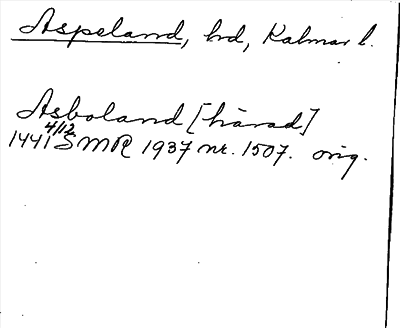 Aspeland, hd, Kalmar l.
Asboland [härad]
1441 4/12 SMR 1937 nr. 1507. orig.